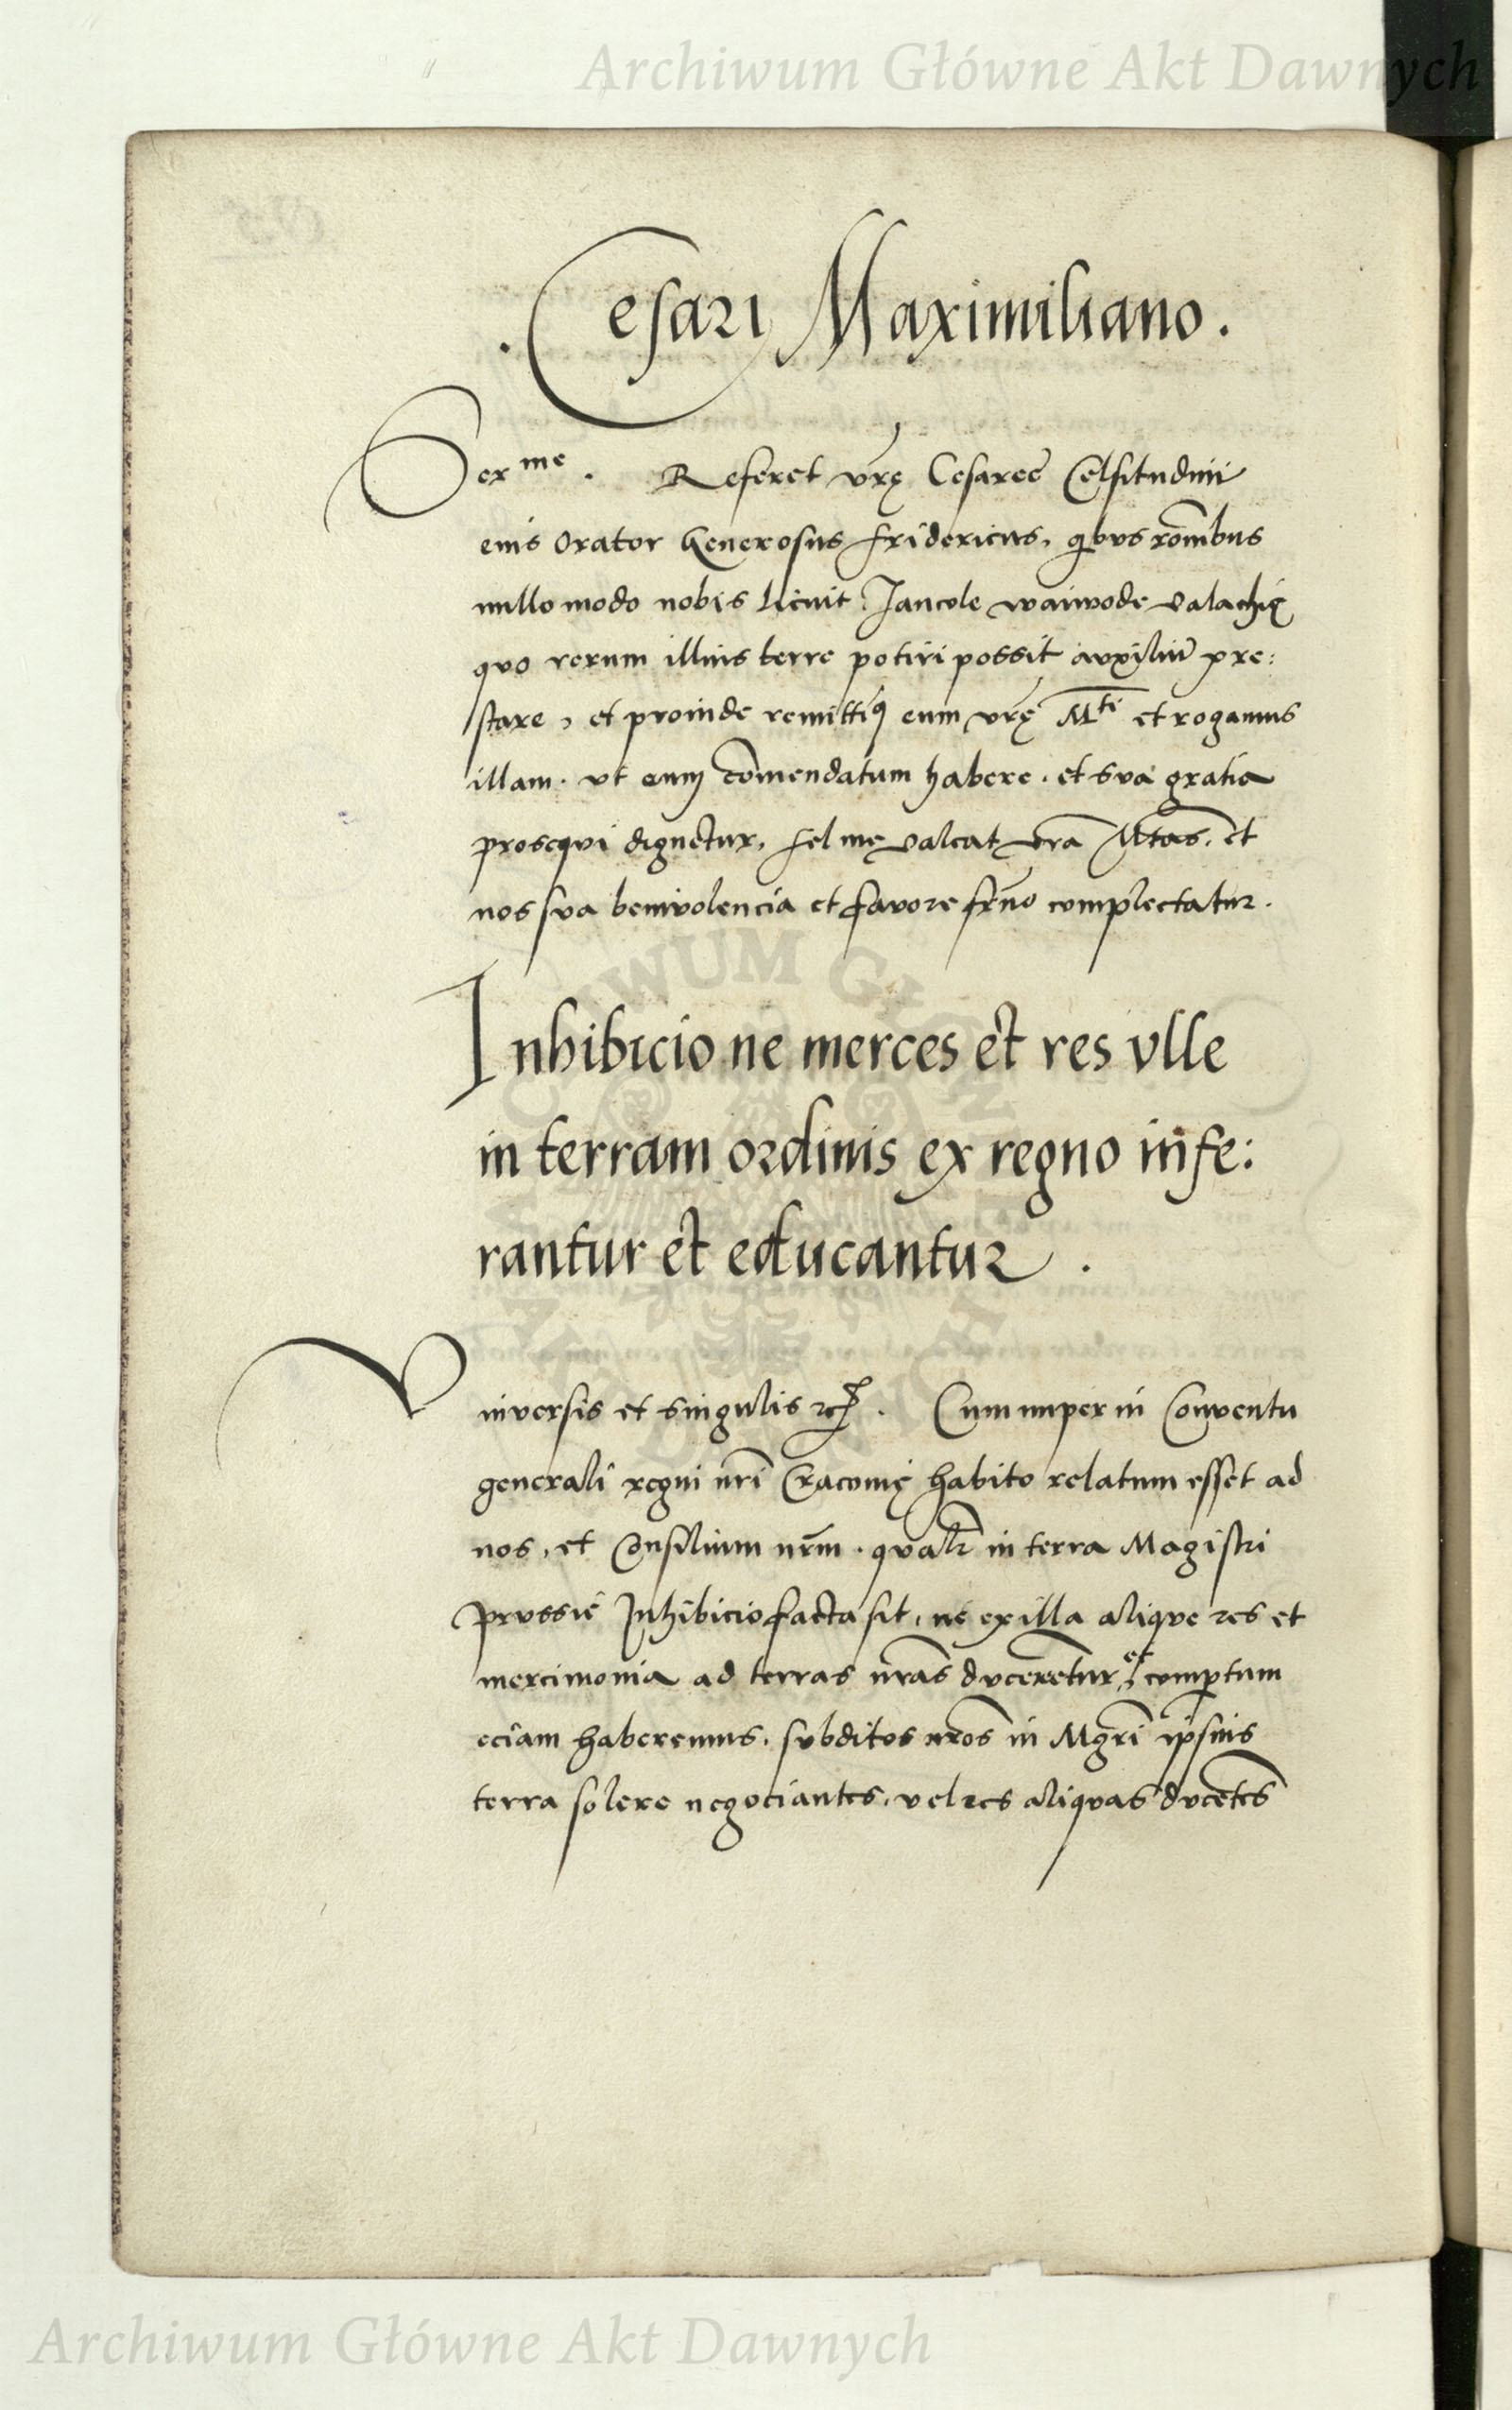 Archiwum Główne Akt Dawnych
. Cesari Maximiliano .
Ser^me . Referet vrę Cesaree Celsitudini
eius Orator Generosus Fridericus, qibus rõnibus
nullo modo nobis licuit Jancole waiwode valachię
quo rerum illius terre potiri possit auxiliũ pre:
stare, et proinde remittiq eum vrę M^ti et rogamus
illam. vt eum cõmendatum habere. et sua gratia
prosequi dignetur, felme valeat vra Mtas, et
nos sua benivolencia et favore frño complectatur.
Inhibicio ne merces et res vlle
in terram ordinis ex regno infe:
rantur et educantur .
Vniversis et singulis . Cum nuper in Conventu
generali regni nri Cracovię habito relatum esset ad
nos, et Consilium nrm. qualr in terra Magistri
prussie Inhibicio facta sit, ne ex illa alique res et
mercimonia ad terras nras ducerẽtur, et comptum
eciam haberemus. subditos nros in Mgri ipsius
terra solere negociantes, vel res aliquas ducẽtes
Archiwum Główne Akt Dawnych